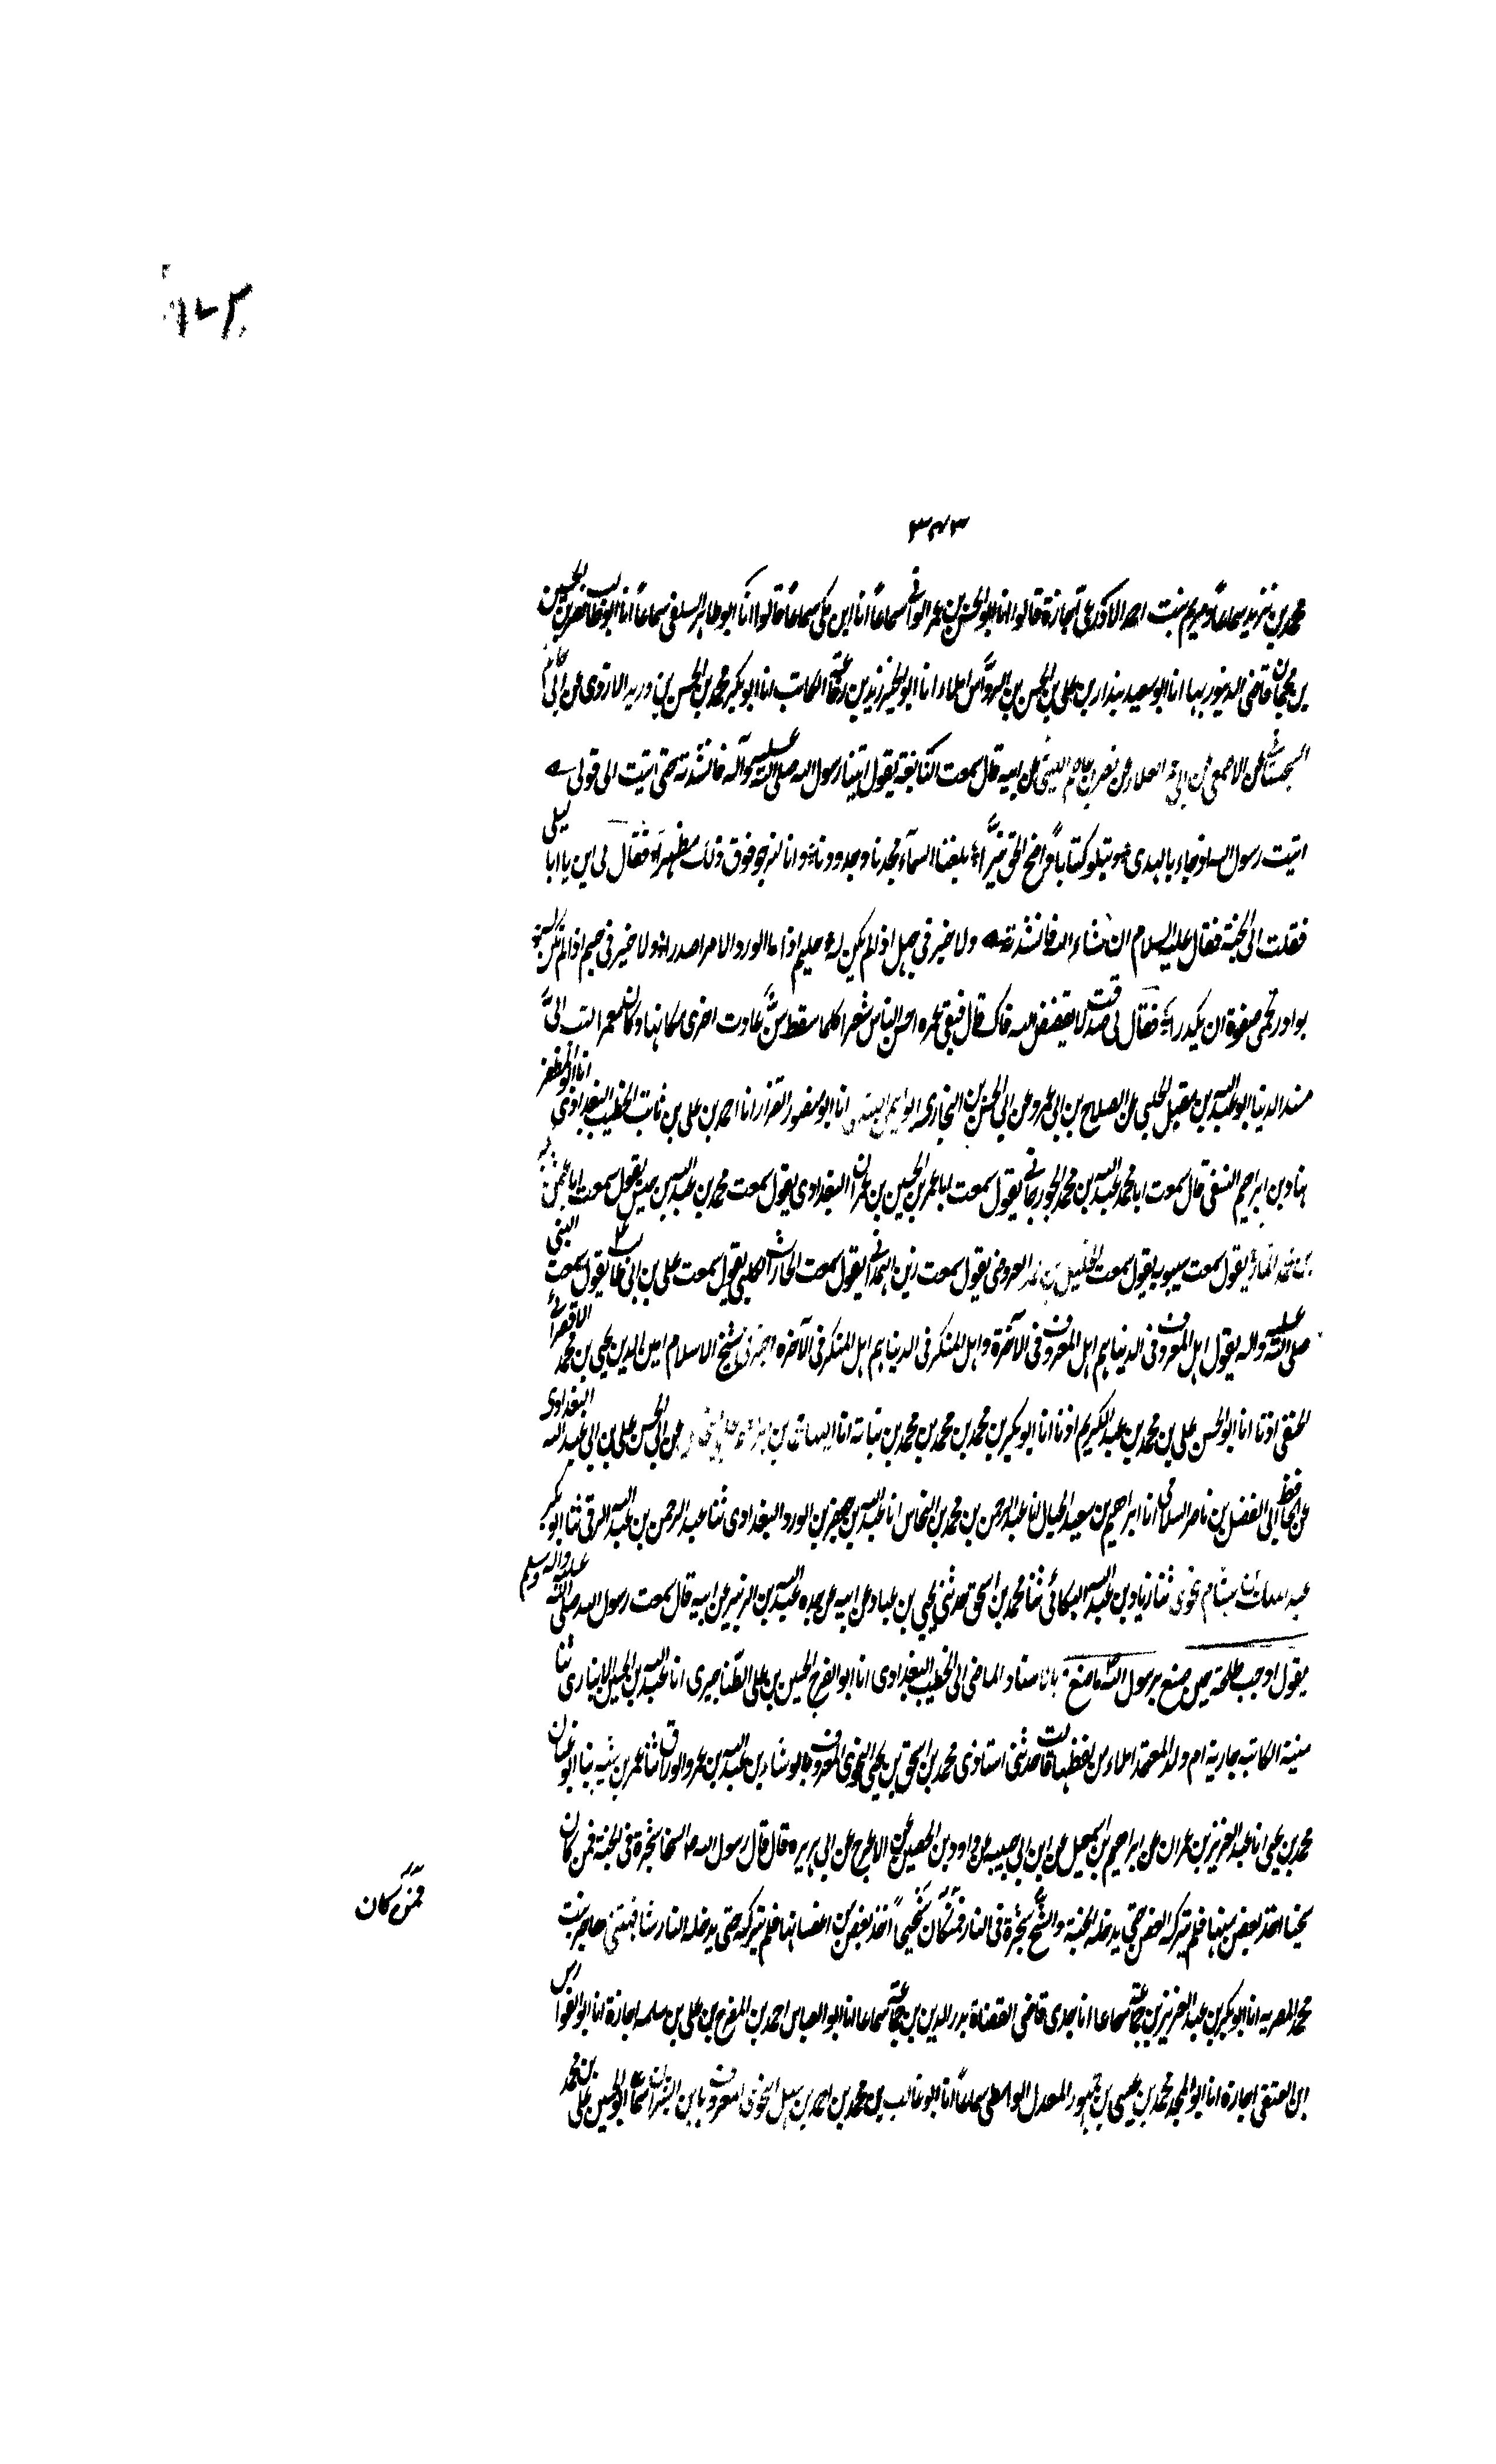 ٣٤٣
محمد بن يزيد سماعا ومريم بنت احمد الاذرعي اجازة قالوا انا ابو الحسن بن عمر الوانى سماعاً انا ابن مكي سماعاً قالوا انا ابو طاهر السلفي سماعاً انا ابو نصر بن الحسين
بن قاضى الدينور بها انا ابو سعيد بندار بن على بن الحسن بن الروّاس املاء انا ابو الخير زيد بن رفاعة الكاتب انا ابو بكر محمد بن الحسن بن دريد الازدي عن ابى حاتم
السجستانى عن الاصمعي عن ابى عمرو بن العلاء عن نصر بن عاصم الليثى عن ابيه قال سمعت النابغة يقول اتينا رسول الله صلى الله عليه وآله فانشدته حتى اتيت الى قولى
اتيت رسول الله اذ جاء بالهدى ويتلو كتاباً واضح الحق نيّراً بلغنا السماء مجدنا وجدودنا وانا لنرجو فوق ذلك مظهرا فقال لى اين يا ابا ليلى
فقلت الى الجنة فقال عليه السلام ان شاء الله فانشدته ولا خير في جهل اذا لم يكن له حليم اذا ما اورد الامر اصدرا ولا خير في حلم اذا لم تكن له
بوادر تحمى صفوة ان يكدرا فقال لى صدقت لا يفضض الله فاك قال فبقى عمره احسن الناس ثغرا كلما سقط سنّ عادت اخرى مكانها وكان معمرا كتب الىّ
مسند الدنيا ابو عبد الله بن مقبل الحلبي عن الصلاح بن ابى عمرو عن ابى الحسن بن البخارى انا ابو اليمن الكندى انا ابو منصور القزاز انا احمد بن على بن ثابت الخطيب البغدادى انا ابو المظفر
هناد بن ابراهيم النسفي قال سمعت ابا محمد عبد الله بن محمد الجورجانى يقول سمعت ابا عمر بن الحسين بن عمران البغدادى يقول سمعت محمد بن عبد الله بن يقول سمعت ابا عثمان
المازنى يقول سمعت سيبويه يقول سمعت الخليل بن احمد العروضى يقول سمعت ذر الهمدانى يقول سمعت الحارث العكلى يقول سمعت على بن ابى طالب يقول سمعت النبى
صلى الله عليه وآله يقول اهل المعروف فى الدنيا هم اهل المعروف فى الآخرة واهل المنكر فى الدنيا هم اهل المنكر فى الآخرة اخبرنى شيخ الاسلام امين الدين يحيى بن محمد الاقصرائى
الحنفى اذنا انا ابو الحسن على بن محمد بن عبد الكريم اذنا انا ابو بكر بن محمد بن محمد بن محمد بن نباتة انا عن ابى الحسن على بن ابى عبد الله البغدادى
عن الحافظ ابى الفضل بن ناصر السلامى انا ابراهيم بن سعيد الحبال انا عبد الرحمن بن محمد بن النحاس انا عبد الله بن جعفر بن الورد البغدادى ثنا عبد الرحمن بن عبد الله البرقى ثنا ابو بكر
عبد الملك بن هشام النحوى ثنا زياد بن عبد الله البكائى ثنا محمد بن اسحق حدثنى يحيى بن عباد عن ابيه عن جده عبد الله بن الزبير عن ابيه قال سمعت رسول الله صلى الله عليه وآله وسلم
يقول اوجب طلحة حين صنع برسول الله ما صنع بالاسناد الماضى الى الخطيب البغدادى انا ابو الفرج الحسين بن على الطناجيرى انا عبد الله بن الحسين الانبارى ثنا
منية الكاتبة جارية ام ولد المعتمد املاء من لفظها قالت حدثنى استاذى محمد بن اسحق بن يحيى النحوى المعروف بالوشاء بن عبد الله بن عمرو الوراق ثنا عمر بن شبه ثنا ابو غسان
محمد بن يحيى انا عبد العزيز بن عمران عن ابراهيم بن اسمعيل عن ابن ابى حبيبه عن داود بن الحصين عن الاعرج عن ابى هريره قال قال رسول الله ص السخا شجرة فى الجنة فمن كان
سخيا اخذ بغصن منها فلم يتركه الغصن حتى يدخله الجنة والشح شجرة فى النار فمن كان شحيحا اخذ بغصن من اغصانها فلم يتركه حتى يدخله النار هاجر بنت
فمن كان
محمد المصريه انا ابو بكر بن عبد العزيز بن جماعة سماعا انا جدى قاضى القضاة بدر الدين بن جماعة سماعا انا ابو العباس احمد بن المفرج بن على بن سلمه اجازة انا ابو الفوارس
ابن اجازة انا ابو المجد محمد بن محمد بن عيسى بن جهور المعدل الواسطى سماعاً انا ابو غالب بن محمد بن احمد بن سهل النحوى المعروف بابن البشران انا ابو الحسين على بن محمد